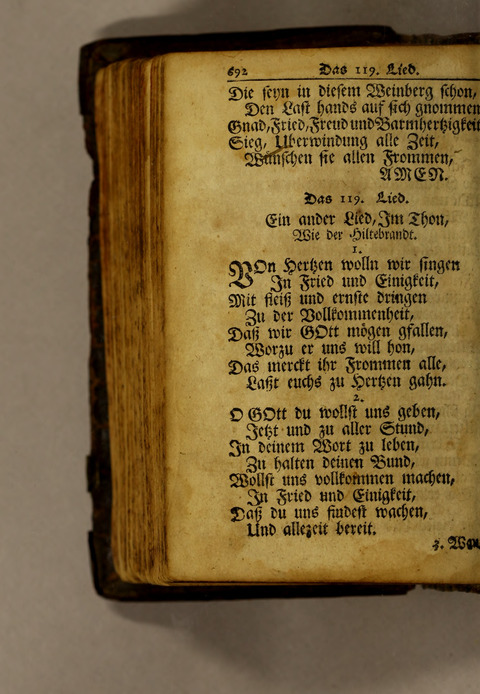 692 Das 119. Lied.
Die seyn in diesem Weinberg schon,
Den Last hands auf sich gnommen
Gnad, Fried, Freud und Barmhertzigkeit
Sieg, Uberwindung alle Zeit,
Wünschen sie allen Frommen,
AMEN.
Das 119. Lied.
Ein ander Lied, Im Thon,
Wie der Hiltebrandt.
1.
VOn Hertzen wolln wir singen
In Fried und Einigkeit,
Mit fleiß und ernste dringen
Zu der Vollkommenheit,
Daß wir GOtt mögen gfallen,
Worzu er uns will hon,
Das merckt ihr Frommen alle,
Laßt euchs zu Hertzen gahn.
2.
O GOtt du wollst uns geben,
Jetzt und zu aller Stund,
In deinem Wort zu leben,
Zu halten deinen Bund,
Wollst uns vollkommen machen,
In Fried und Einigkeit,
Daß du uns findest wachen,
Und allezeit bereit.
3.